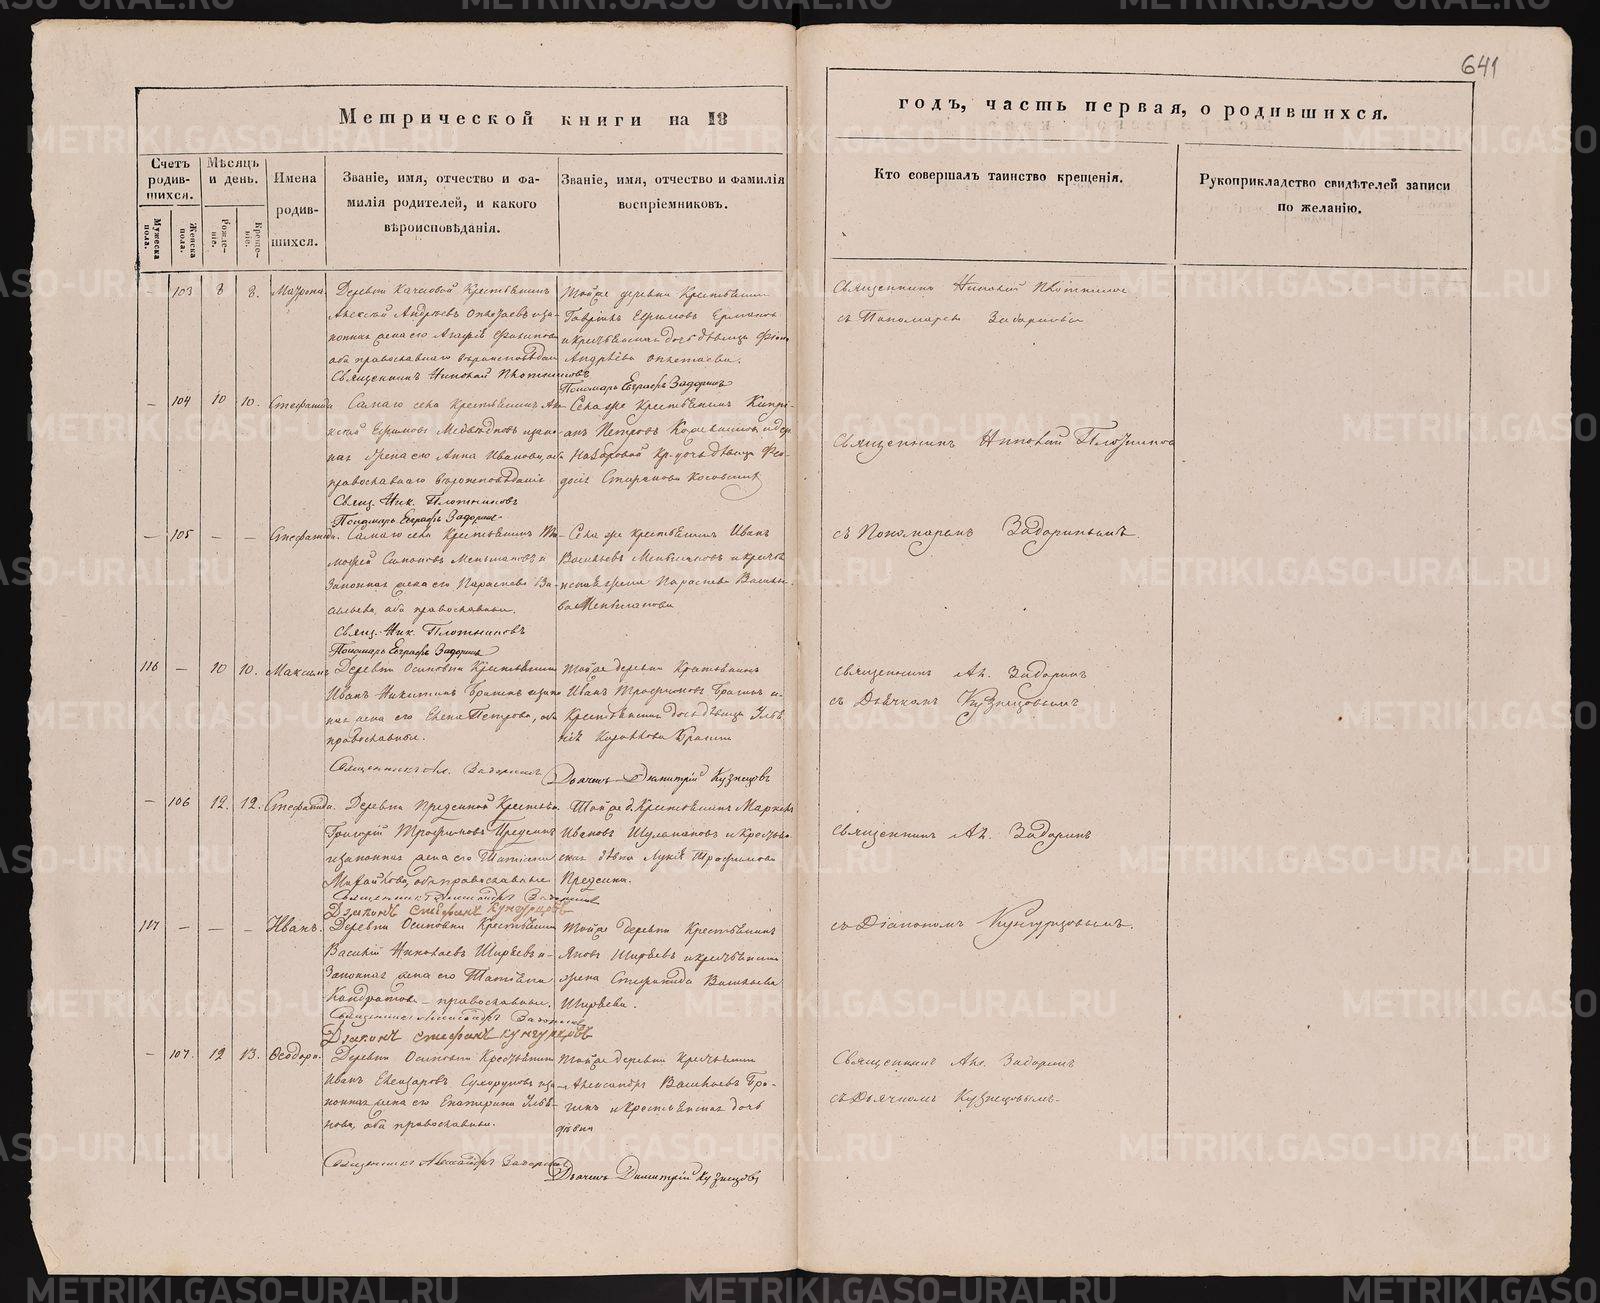 641
Метрической книги на 18
годъ, часть первая, о родившихся.
Счетъ родив-шихся.
Мѣсяцъ и день.
Имена родив-шихся.
Званіе, имя, отчество и фа-
милія родителей, и какого
вѣроисповѣданія.
Званіе, имя, отчество и фамилія
воспріемниковъ.
Кто совершалъ таинство крещенія.
Рукоприкладство свидѣтелей записи
по желанію.
Мужеска пола.
Женска пола.
Рожде-ніе.
Креще-ніе.
103 8 8. Матрона. Деревни Крестьянинъ
Алексѣй Андреевъ
законная жена его Агафія
оба православнаго вѣроисповѣданія
Священникъ Николай Плотниковъ
Тойже деревни Крестьянинъ
Гавріилъ Ефимовъ
и крестьянская дочь дѣвица
Андрѣева
Пономарь Евграфъ Задоринъ
Священникъ Николай Плотниковъ
съ Пономаремъ Задоринымъ
– 104 10 10. Стефанида Самаго села Крестьянинъ Але-
ксѣй Ефимовъ Медвѣдковъ и закон-
ная жена его Анна Иванова, оба
православнаго вѣроисповѣданія
Свящ. Ник. Плотниковъ
Пономарь Евграфъ Задоринъ
Села же Крестьянинъ Кипрі-
анъ Петровъ
дочь дѣвица Фео-
досія
Священникъ Николай Плотниковъ
– 105 – – Стефанида. Самаго села Крестьянинъ Ти-
мофей Симоновъ Меньшиковъ и
законная жена его Параскева Ва-
сильева, оба православные.
Свящ. Ник. Плотниковъ
Пономарь Евграфъ Задоринъ
Села же крестьянинъ Иванъ
Васильевъ Меньшиковъ и крестья
нская жена Параскева Василье-
ва Меньшикова
съ Пономаремъ Задоринымъ.
116 – 10 10. Максимъ Деревни Осиповки Крестьянинъ
Иванъ Никитинъ Брагинъ и закон
ная жена его Елена Петрова, оба
православные.
Священникъ Ал. Задоринъ
Тойже деревни Крестьянинъ
Иванъ Трофимовъ Брагинъ и
Крестьянская дочь дѣвица Улья
нія Брагина
Дьячекъ Димитрій Кузнецовъ
Священникъ Ал. Задоринъ
съ Дьячкомъ Кузнецовымъ
– 106 12. 12. Стефанида. Деревни Крестьян.
Григорій Трофимовъ
и законная жена его Татіана
Михайлова, оба православные
Священникъ Александръ Задоринъ
Діаконъ Стефанъ Кунгурцовъ
Тойже д. Крестьянинъ Маркелъ
Ивановъ и Крестьян-
ская дѣвка Лукія Трофимова
Священникъ Ал. Задоринъ
117 – – – Иванъ. Деревни Осиповки Крестьянинъ
Василій Николаевъ Ширяевъ и
законная жена его Татіана
Кондратова – православные.
Священникъ Александръ Задоринъ
Діаконъ Стефанъ Кунгурцовъ
Тойже деревни Крестьянинъ
Яковъ Ширяевъ и крестьянская
жена Стефанида Васильева
Ширяева.
съ Діакономъ Кунгурцовымъ.
– 107. 12 13. Ѳеодора. Деревни Осиповки Крестьянинъ
Иванъ Елеазаровъ Сухоруковъ и за-
конная жена его Екатерина Улья-
нова, оба православные.
Священникъ Александръ Задоринъ
Тойже деревни Крестьянинъ
Александръ Васильевъ Бра-
гинъ и крестьянская дочь
дѣвица
Дьячекъ Димитрій Кузнецовъ
Священникъ Ал. Задоринъ
съ Дьячкомъ Кузнецовымъ.
METRIKI.GASO-URAL.RU